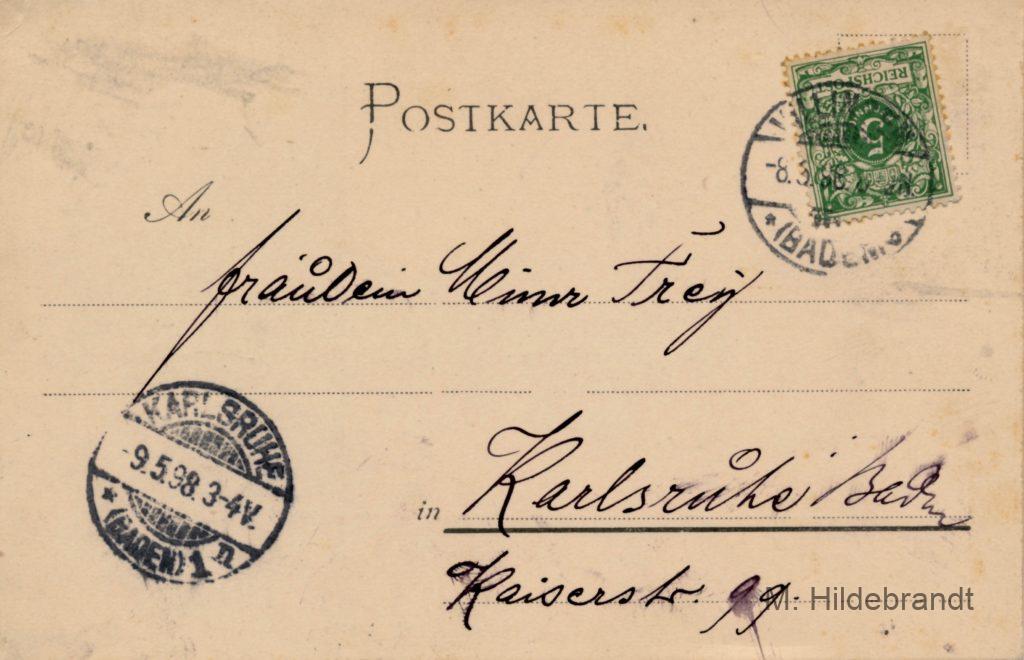 POSTKARTE.
REICHSPOST
5
(BADEN)
An
fräulein Minna Frey
KARLSRUHE
-9.5.98.3-4V.
(BADEN) 1 n
in Karlsruhe Baden
Kaiserstr. 99.
M. Hildebrandt